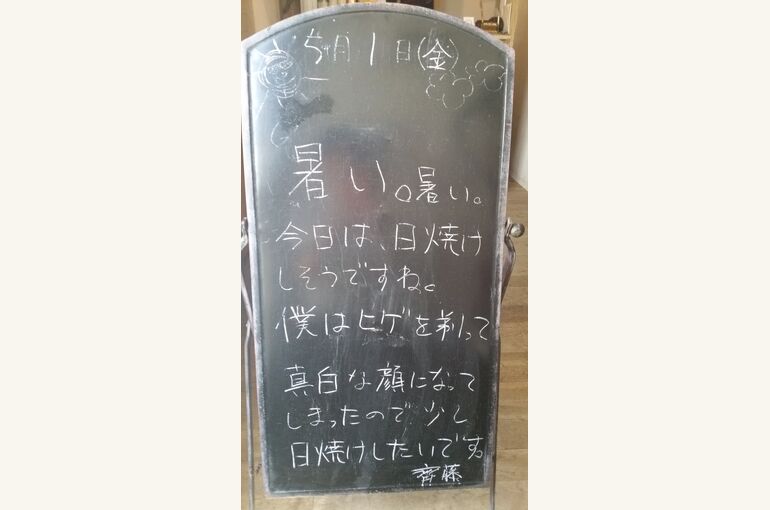 5月1日(金)
暑い。暑い。
今日は、日焼け
しそうですね。
僕はヒゲを剃って
真白な顔になって
しまったので少し
日焼けしたいです。
齊藤